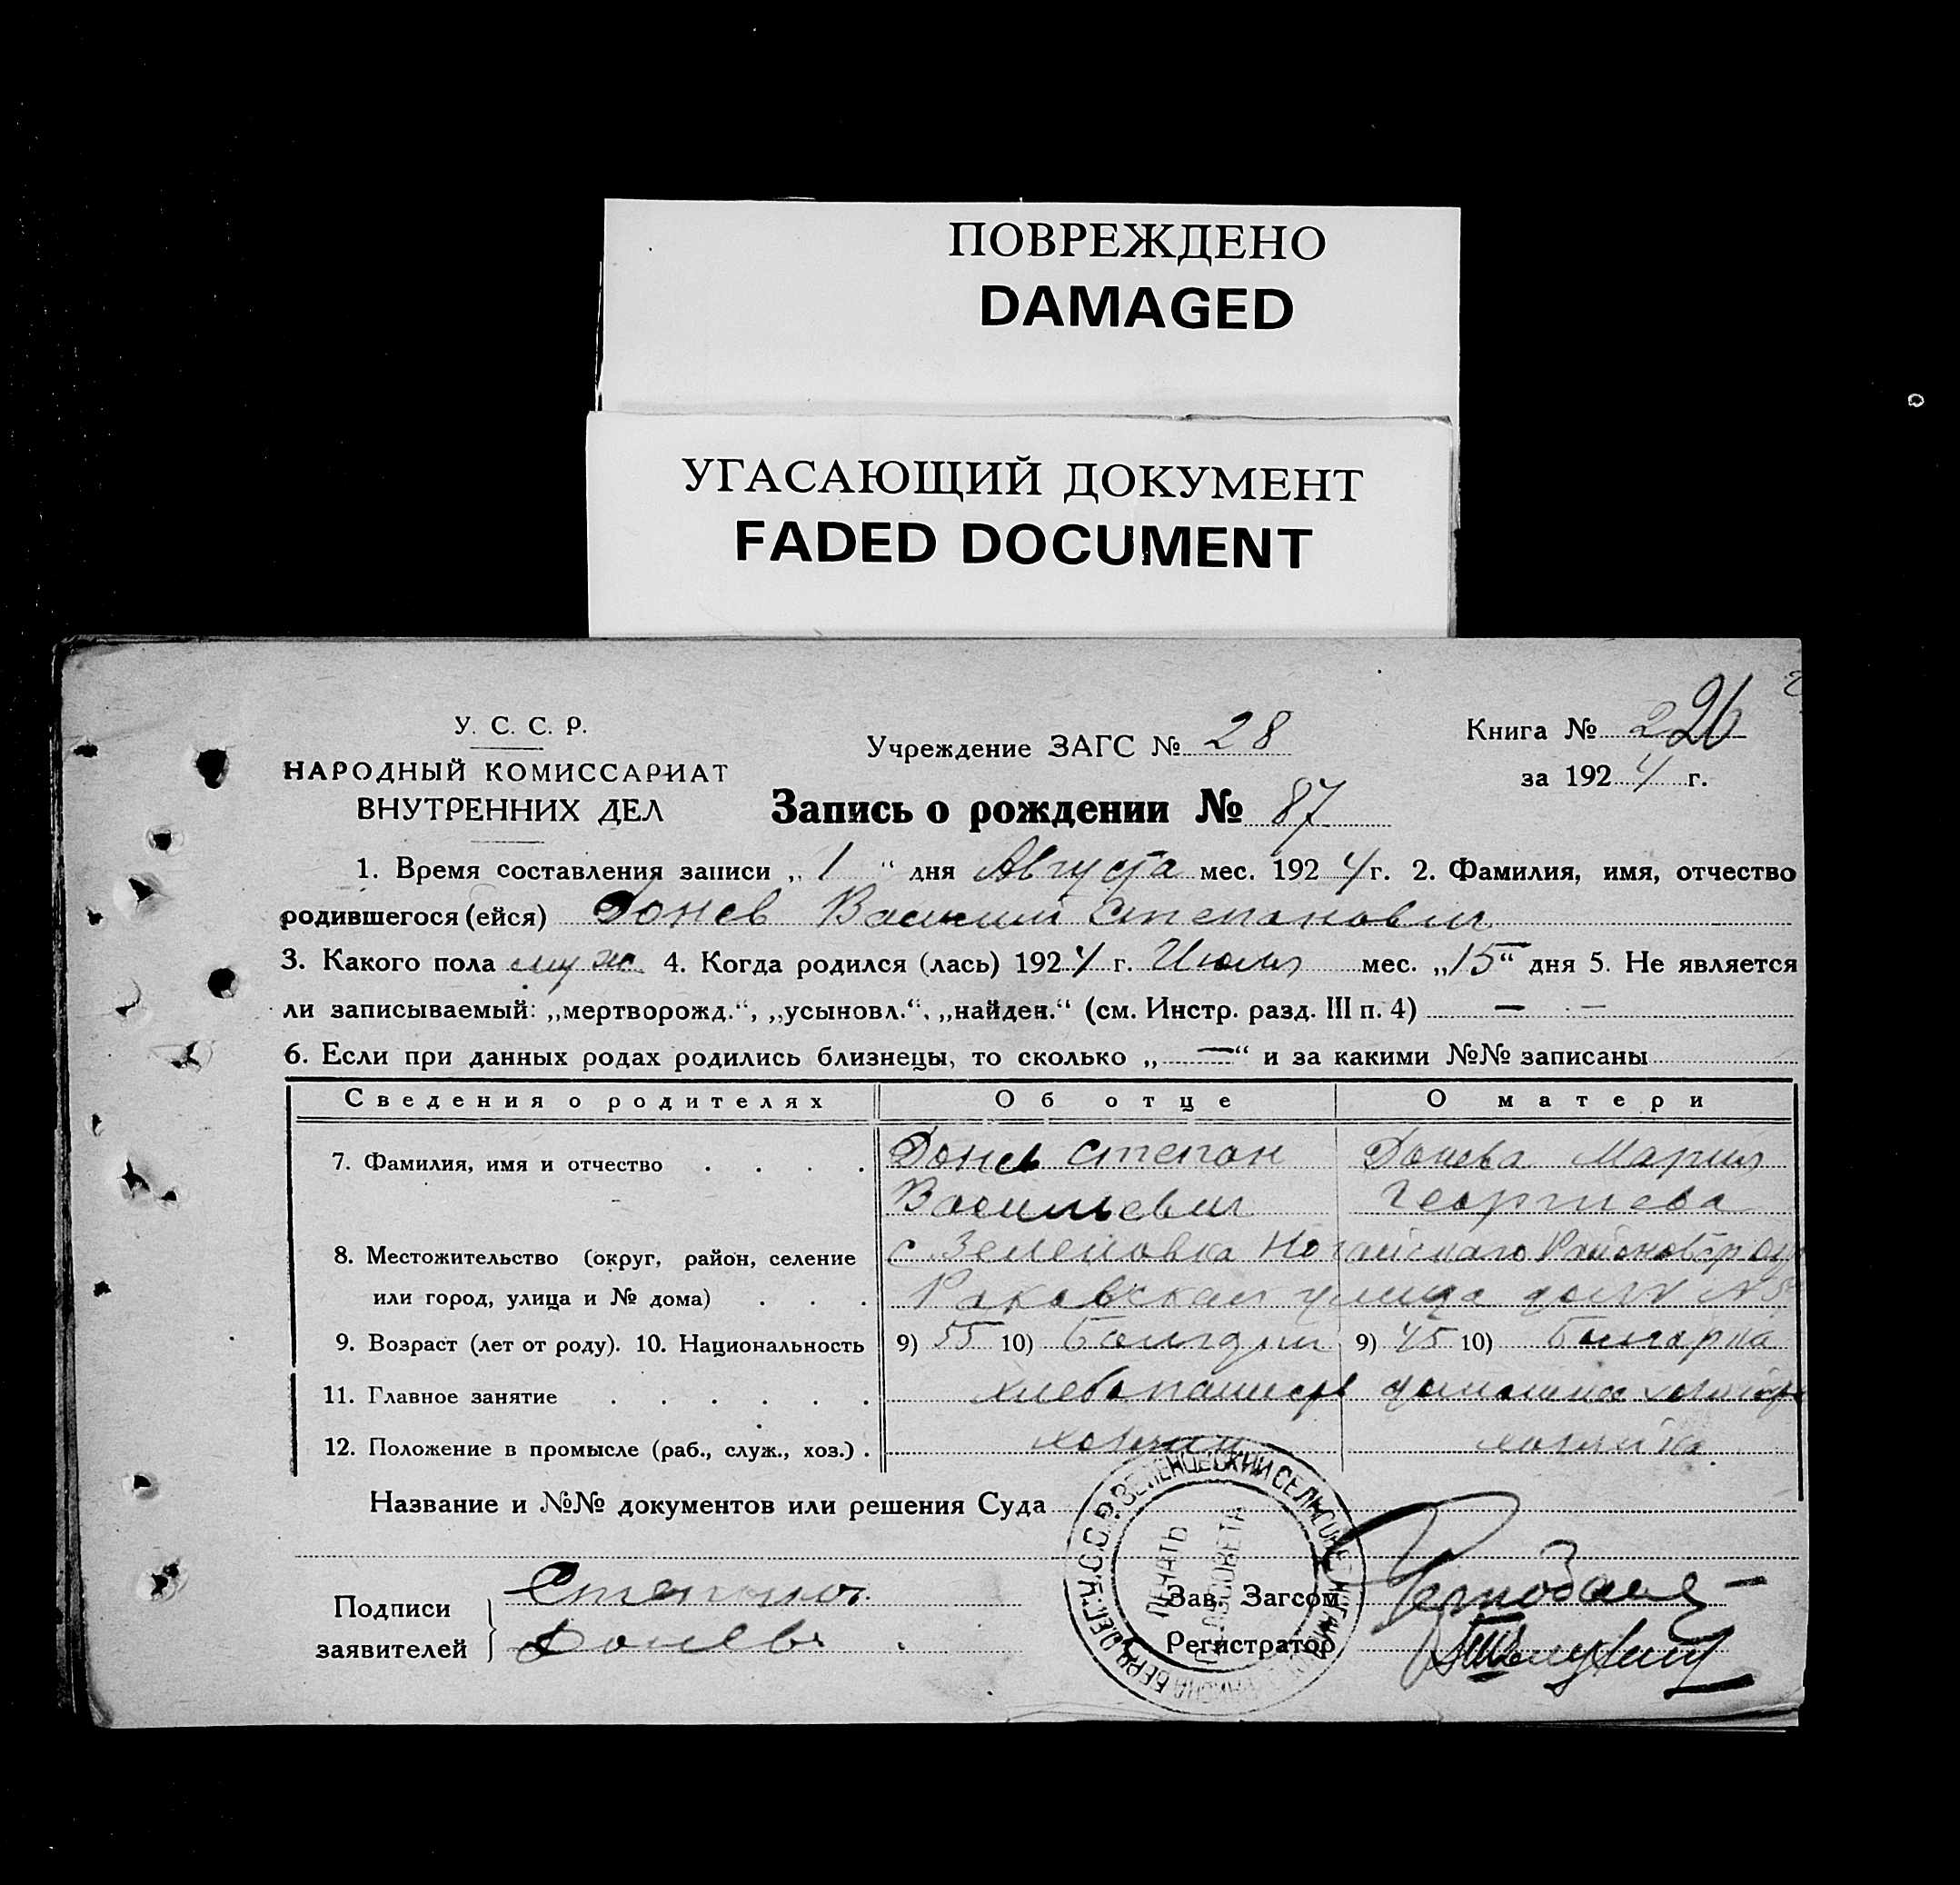 ПОВРЕЖДЕНО
DAMAGED
УГАСАЮЩИЙ ДОКУМЕНТ
FADED DOCUMENT
У. С. С. Р.
НАРОДНЫЙ КОМИССАРИАТ
ВНУТРЕННИХ ДЕЛ
Учреждение ЗАГС № 28
Книга № 226
за 1924 г.
Запись о рождении № 87
1. Время составления записи „1“ дня Августа мес. 1924 г. 2. Фамилия, имя, отчество
родившегося (ейся) Донев Василий Степанович
3. Какого пола муж. 4. Когда родился (лась) 1924 г. Июля мес. „15“ дня 5. Не является
ли записываемый: „мертворожд.“, „усыновл.“, „найден.“ (см. Инстр. разд. III п. 4) — —
6. Если при данных родах родились близнецы, то сколько „—“ и за какими №№ записаны
Сведения о родителях Об отце О матери
7. Фамилия, имя и отчество Донев Степан Донева Мария
Васильевич Георгиева
8. Местожительство (округ, район, селение с. Зеленовка Ногайскаго
или город, улица и № дома) Раковская улица дом №
9. Возраст (лет от роду). 10. Национальность 9) 55 10) Болгарин 9) 45 10) Болгарка
11. Главное занятие хлебопашец домашнее
12. Положение в промысле (раб., служ., хоз.) хозяин хозяйка
Название и №№ документов или решения Суда
Подписи заявителей Степан
Донев
Зав. Загсом
Регистратор
У.С.С.Р. СЕЛЬСК
ПЕЧАТЬ